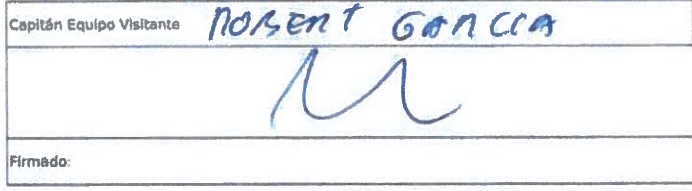 Capitán Equipo Visitante ROBERT GARCIA
Firmado: